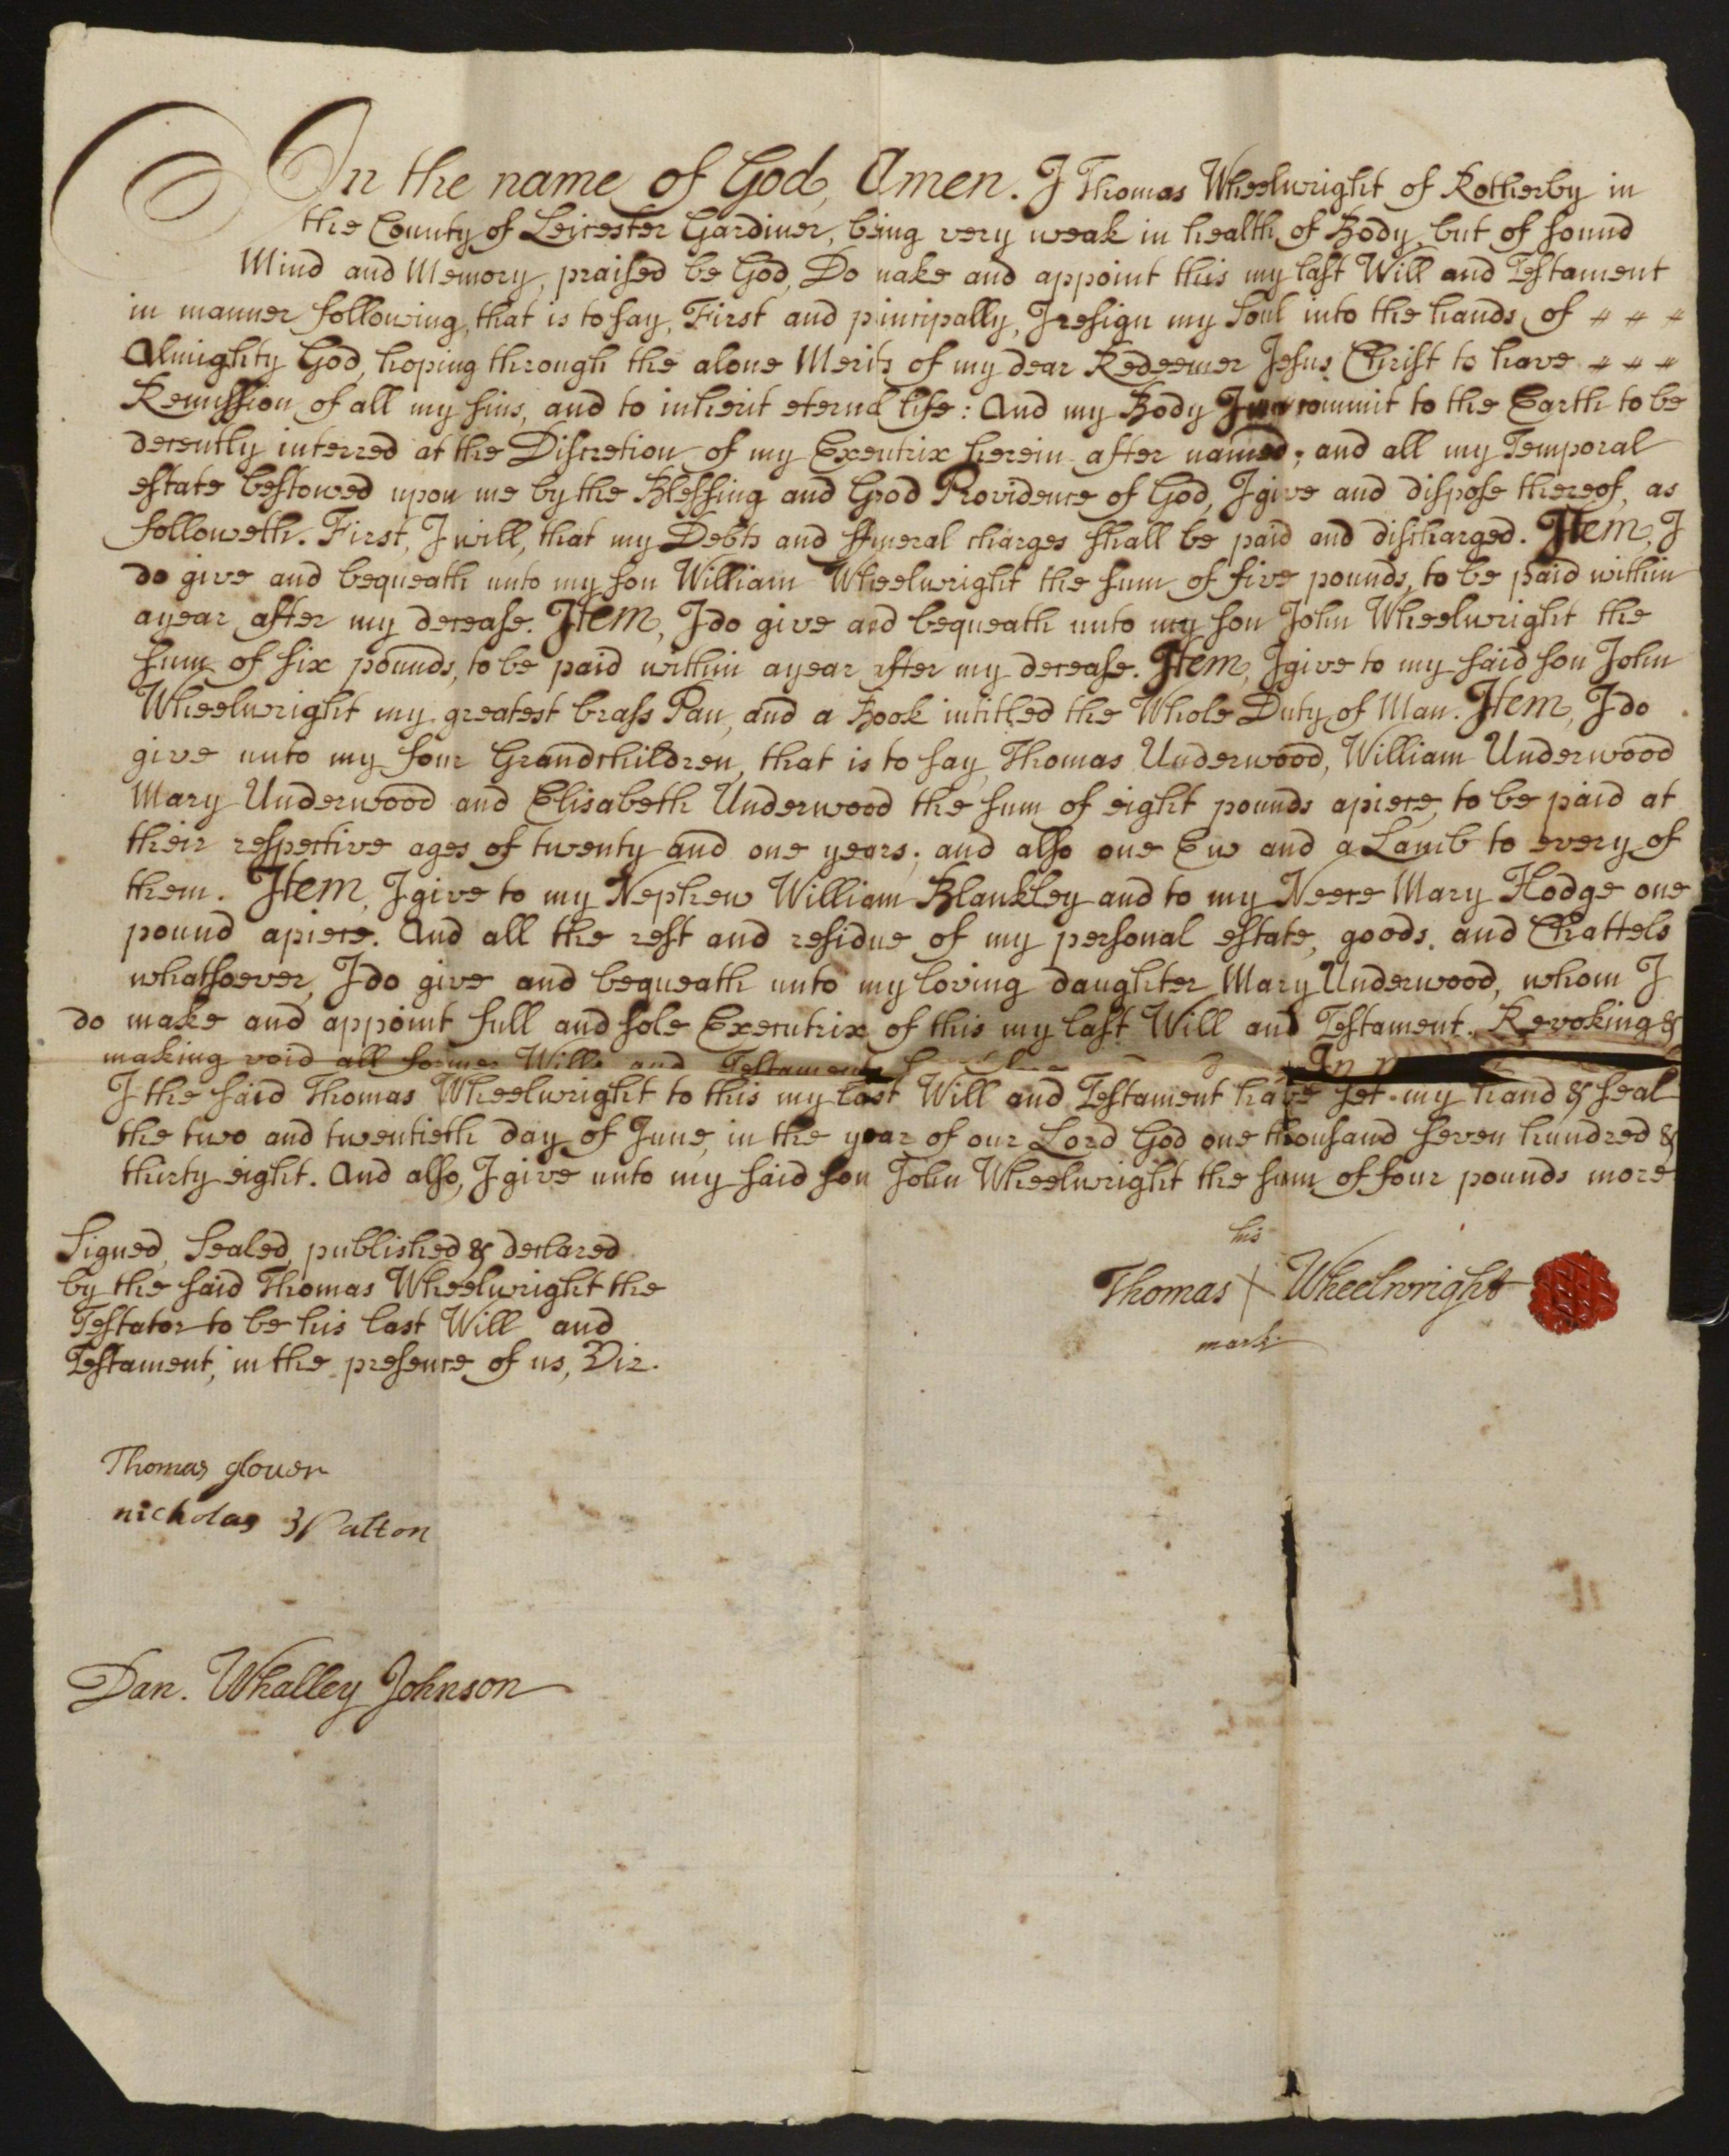 In the name of God, Amen. I Thomas Wheelwright of Rotherby in
the County of Leicester Gardiner, being very weak in health of Body, but of sound
Mind and Memory, praised be God, Do make and appoint this my last Will and Testament
in manner following, that is to say, First and principally, I resign my Soul into the hands of
Almighty God, hoping through the alone Merits of my dear Redeemer Jesus Christ to have
Remission of all my sins, and to inherit eternal life: And my Body I commit to the Earth to be
decently interred at the Discretion of my Exeutrix herein after named; and all my Temporal
estate bestowed upon me by the Blessing and Good Providence of God, I give and dispose thereof, as
followeth. First, I will, that my Debts and ffuneral charges shall be paid and discharged. Item, I
do give and bequeath unto my son William Wheelwright the sum of five pounds, to be paid within
a year after my decease. Item, I do give and bequeath unto my son John Wheelwright the
sum of six pounds, to be paid within a year after my decease. Item, I give to my said son John
Wheelwright my greatest brass Pan, and a Book intitled the Whole Duty of Man. Item, I do
give unto my four Grandchildren, that is to say, Thomas Underwood, William Underwood
Mary Underwood and Elisabeth Underwood the sum of eight pounds apiece, to be paid at
their respective ages of twenty and one years; and also one Ew and a Lamb to every of
them. Item, I give to my Nephew William Blankley and to my Neece Mary Hodge one
pound apiece. And all the rest and residue of my personal estate, goods, and Chattels
whatsoever, I do give and bequeath unto my loving daughter Mary Underwood, whom I
do make and appoint full and sole Executrix of this my last Will and Testament. Revoking &
making void all former Wills and Testaments In
I the said Thomas Wheelwright to this my last Will and Testament have set my hand & seal
the two and twentieth day of June, in the year of our Lord God one thousand seven hundred &
thirty eight. And also, I give unto my said son John Wheelwright the sum of four pounds more
Signed, Sealed, published & declared
by the said Thomas Wheelwright the
Testator to be his last Will and
Testament, in the presence of us, Viz.
his
Thomas X Wheelwright
mark
Thomas glover
nicholas Walton
Dan. Whalley Johnson